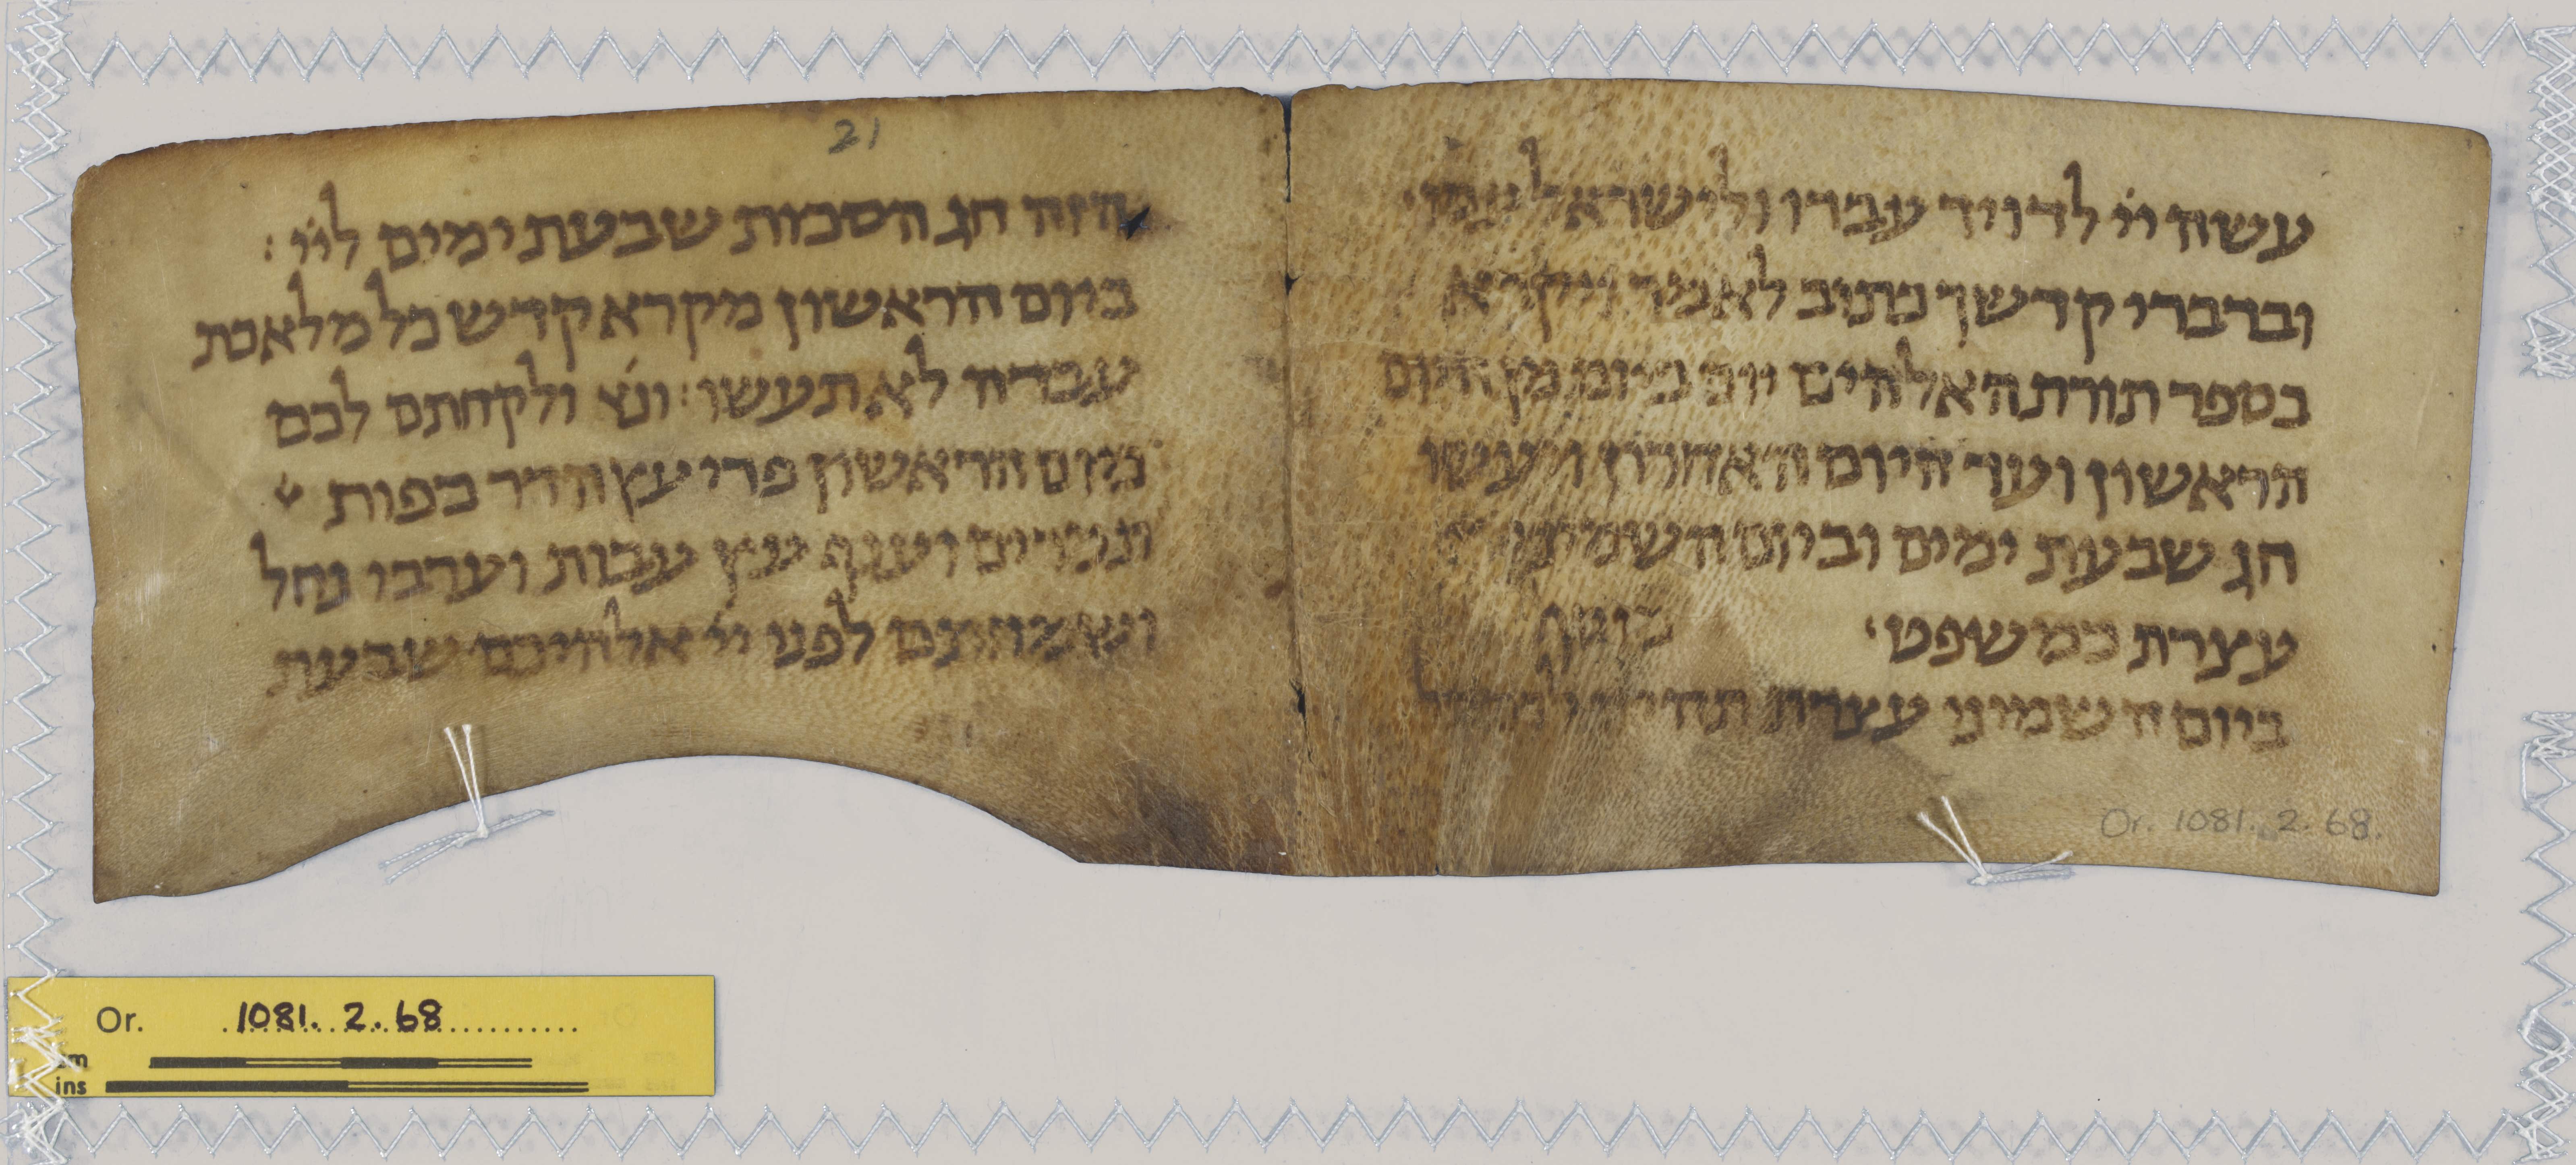 עשה יי לדויד עבדו ולישראל עמו
ובדברי קדשך כתוב לאמר ויקרא
בספר תורת האלהים יום ביום מן היום
הראשון ועד היום האחרון ויעשו
חג שבעת ימים וביום השמיני
עצרת כמשפט
ביום השמיני עצרת תהיה
21
הזה חג הסכות שבעת ימים ליי :
ביום הראשון מקרא קדש כל מלאכת
עבדה לא תעשו : ונא ולקחתם לכם
ביום הראשון פרי עץ הדר כפות
תמרים וענף עץ עבות וערבי נחל
ושמחתם לפני יי אלהיכם שבעת
Or. 1081. 2. 68.
Or. 1081. 2. 68
cm
ins